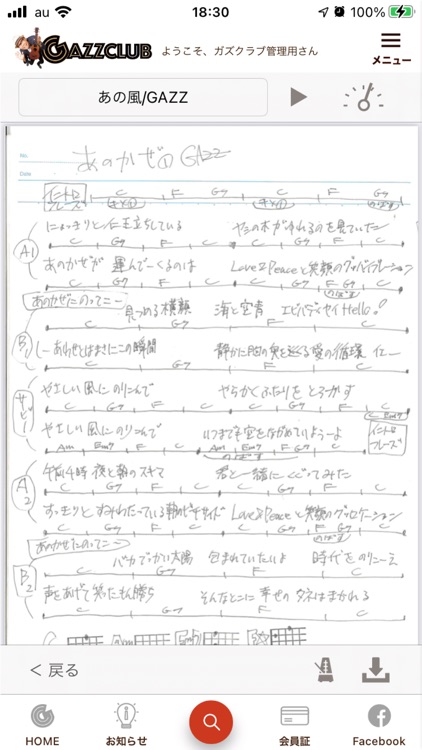 au 18:30 100%
GAZZCLUB ようこそ、ガズクラブ管理用さん メニュー
あの風/GAZZ
No.
Date
あのかぜ① GAZZ
イントロ フレーズ C F G7 C F G7
A1
にょっきりと仁王立ちしている ヤシの木がゆれるのを見ていた
C G7 F C C G7 F C
あのかぜが 運んでくるのは Love&Peaceと笑顔のグッバイブレーション
C G7 F C C G7 F G7 C
のばす
あのかぜにのってこー
B1
見つめる横顔 海と空青 エビバディセイHello!
C G7 F C
しーあわせとはまさにこの瞬間 静かに胸の奥を巡る愛の循環 イェー
C G7 F C
サビ1
やさしい風に のりこんで やらかくふたりを とろかす
C G7 F C C G7 F C Em7
やさしい風に のりこんで いつまでも空をながめていようーよ
Am Em7 F C Am Em7 F G7 C
のばす
イントロ フレーズ
A2
午前4時 夜と朝のスキマ 君と一緒に くぐってみた
C G7 F C C G7 F C
すっきりと すみわたっている朝のビーチサイド Love&Peaceと笑顔の
C G7 F C C G7 F G7 C
のばす
あのかぜにのってこー
B2
バカでっかい太陽 包まれていたいよ 時代をのりこーえ
C G7 F C
声をあげて笑った そんなとこに 幸せの タネはまかれる
C G7 F C
C Am Em7
< 戻る
HOME お知らせ 会員証 Facebook